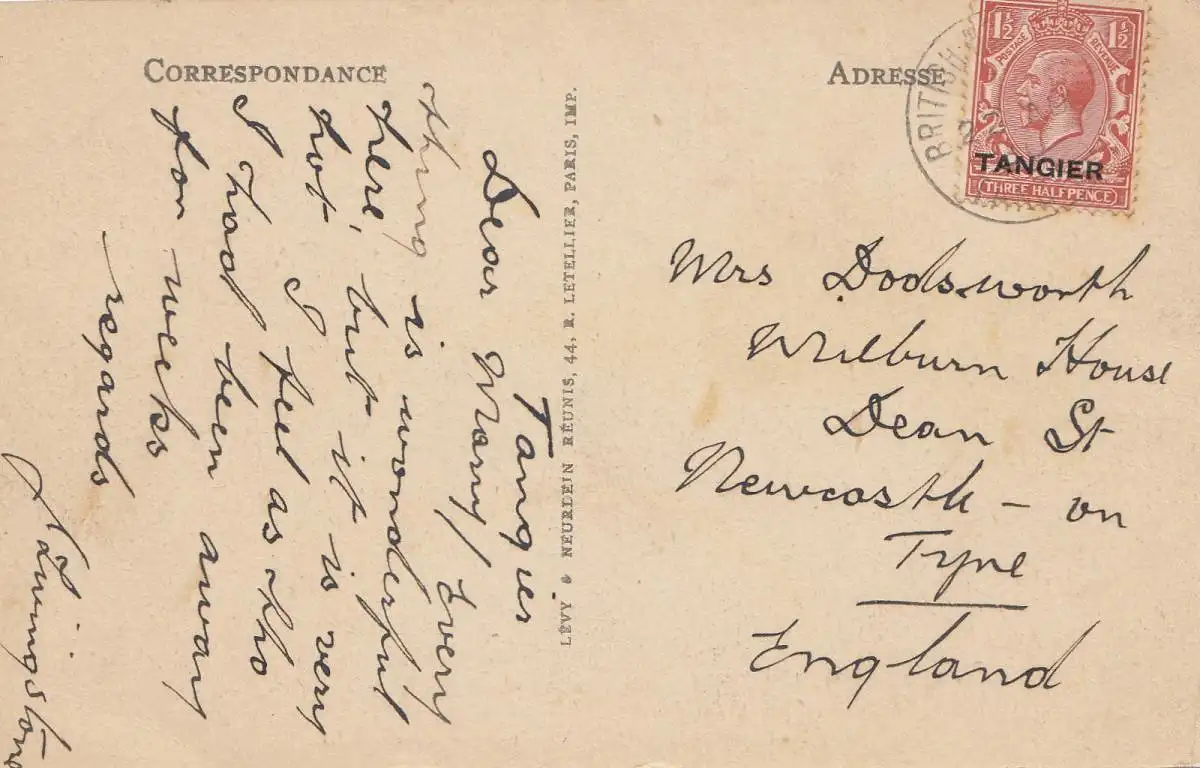 CORRESPONDANCE
Tangier
Dear Mary/ Every
thing is wonderful
here, but it is very
hot I feel as tho
I had been away
for weeks
regards
Livingstone
LÉVY & NEURDEIN RÉUNIS, 44, R. LETELLIER, PARIS, IMP.
ADRESSE
BRITISH
1½ 1½
POSTAGE REVENUE
TANGIER
THREE HALFPENCE
Mrs Dodsworth
Milburn House
Dean St
Newcastle - on
Tyne
England